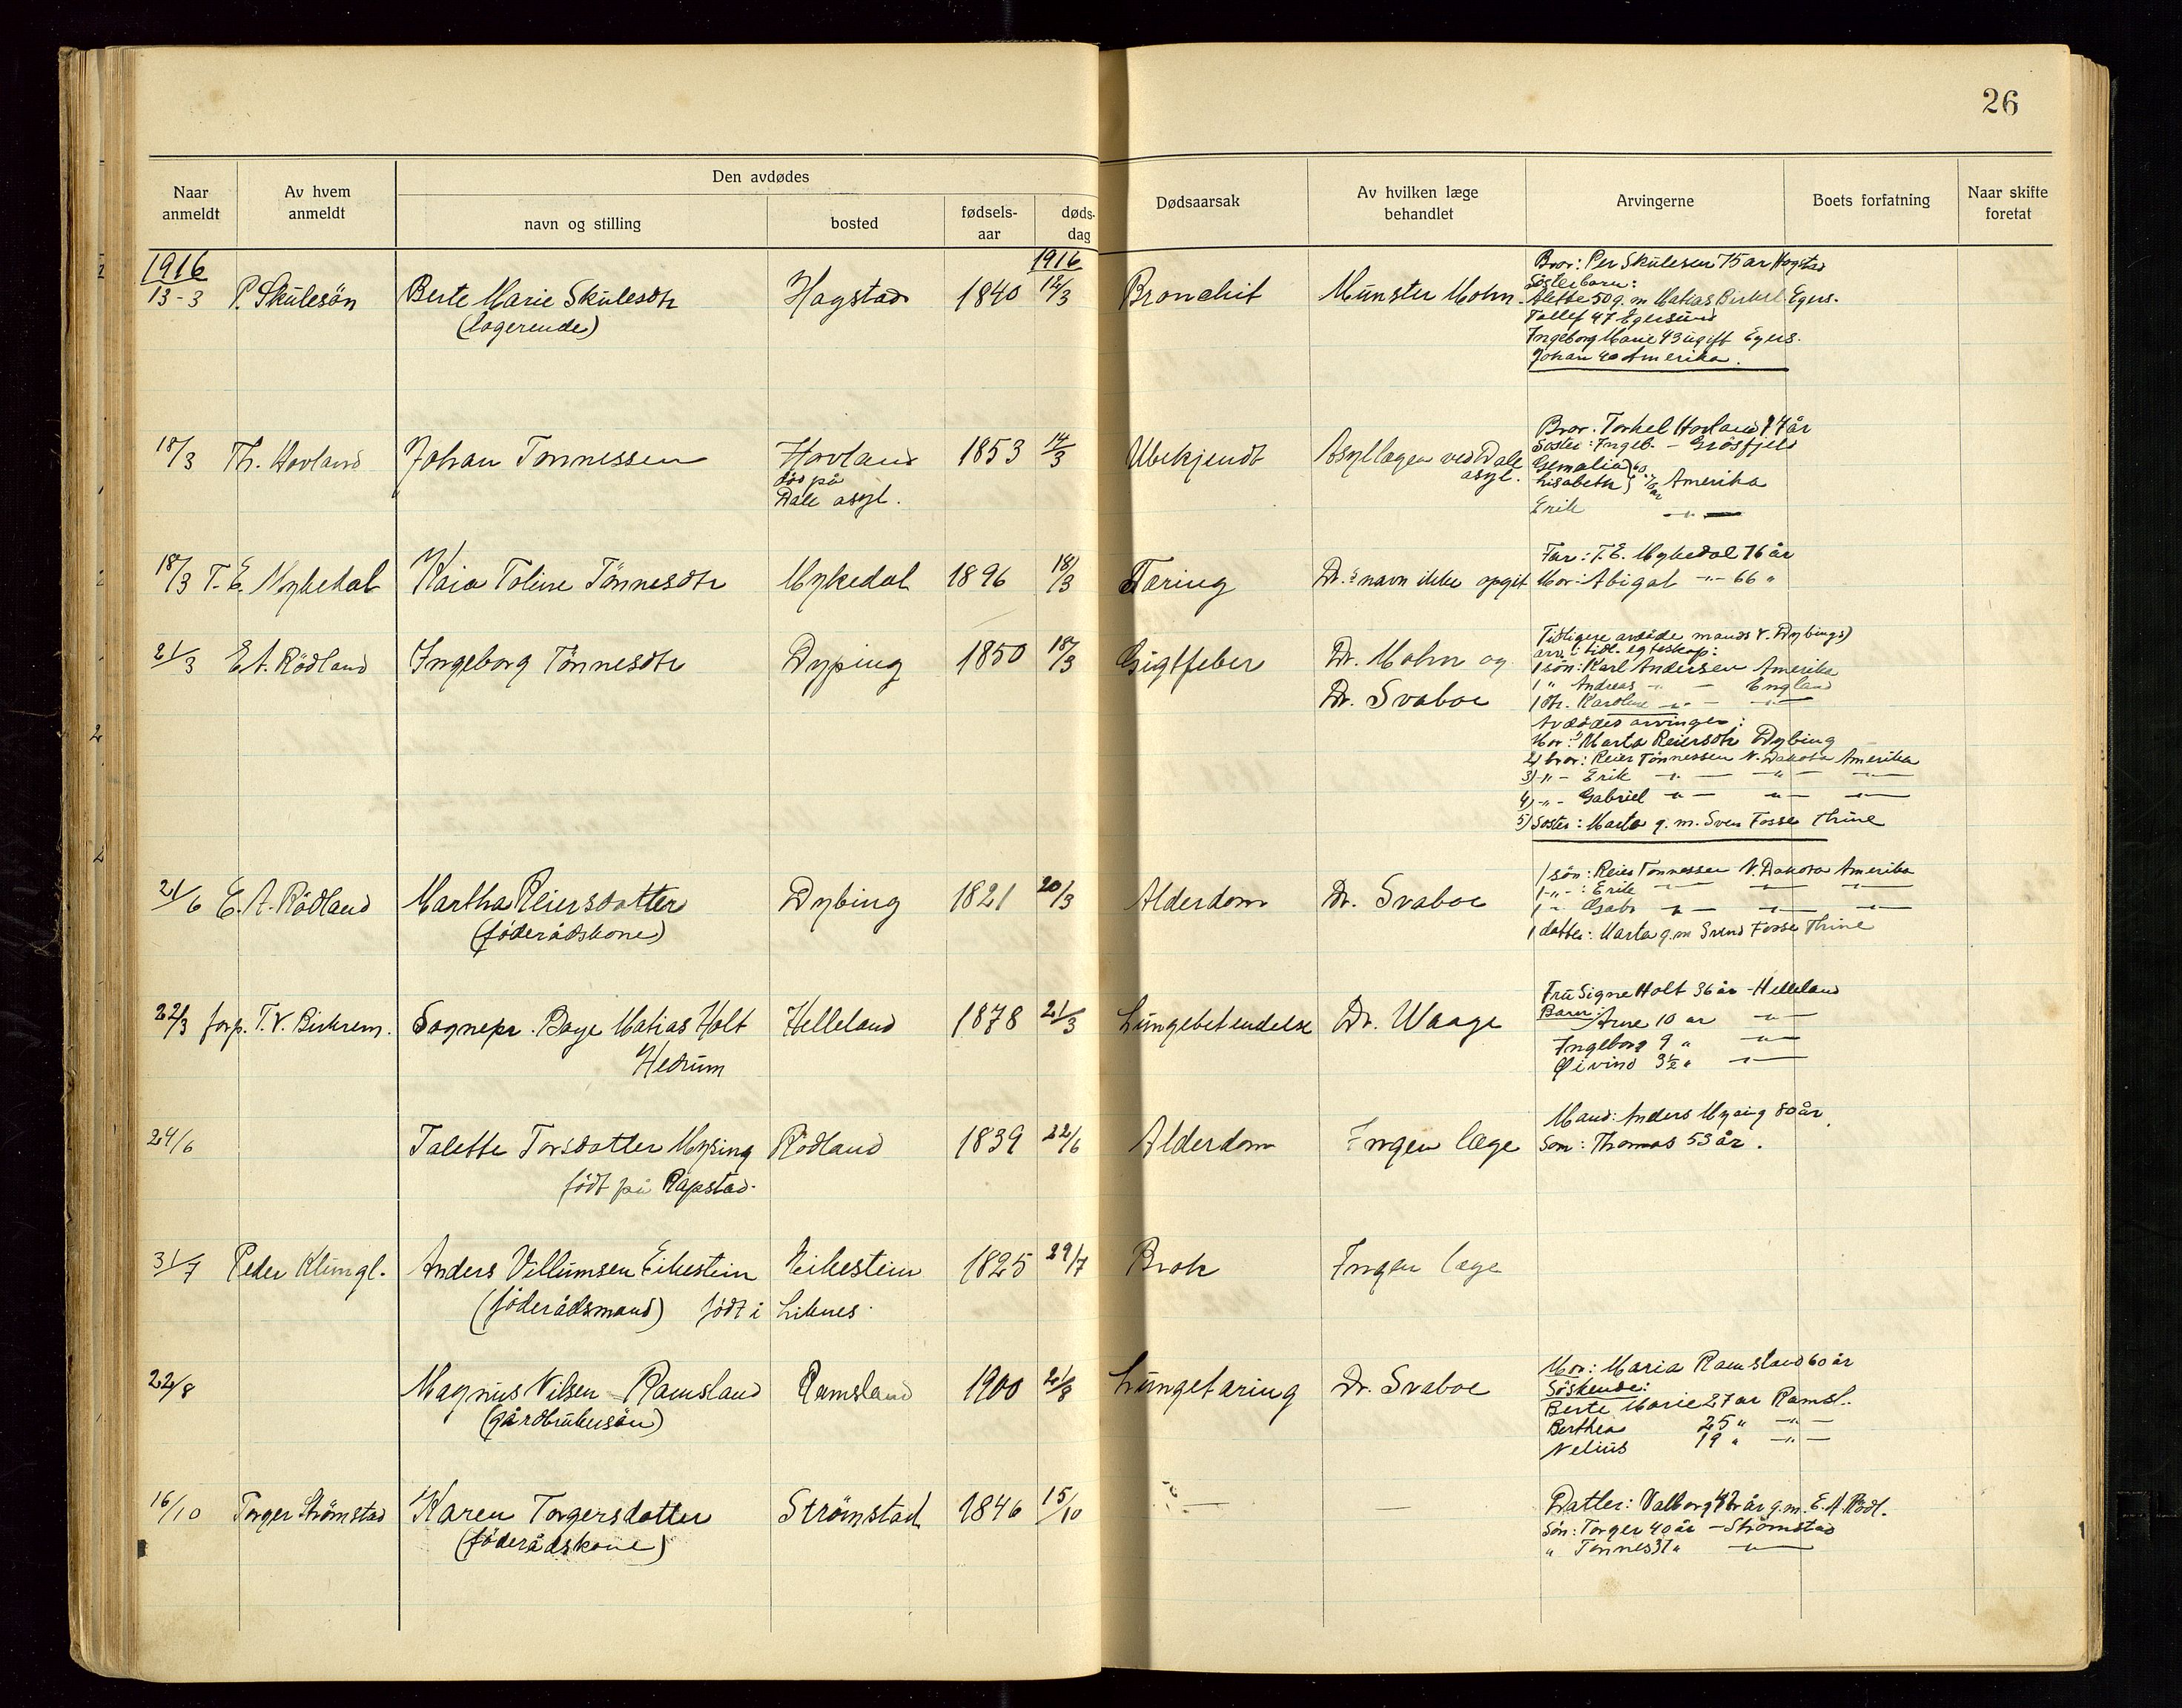 26
Naar anmeldt
Av hvem anmeldt
Den avdødes
navn og stilling
bosted
fødsels-aar
døds-dag
Dødsaarsak
Av hvilken læge behandlet
Arvingerne
Boets forfatning
Naar skifte foretat
1916
1916
13-3 P. Skulesön Berte Marie Skulesdtr Hagstad 1840 12/3 Bronchit Munster Mohn
(logerende)
Bror: Per Skulesen 75 år Hagstad
Sösterbarn:
Alette 50 g. m Matias Birkel Egers.
Tollef 47 Egersund
Ingeborg Marie 43 ugift Egers.
Johan 40 Amerika.
18/3 Th. Hovland Johan Tønnessen Hovland 1853 14/3 Ubekjendt Asyllægen ved Dale
død på
Dale asyl.
asyl.
Bror. Torkel Hovland 74 år
Søster: Ingeb. — Grösfjeld
Lisabeth Amerika
Erik — " —
18/3 T. E. Mykedal Kaia Toline Tönnesdtr Mykedal 1896 18/3 Tæring Dr.s navn ikke opgit
Far: T. E. Mykedal 76 år
Mor: Abigal -"- 66 "
21/3 E A. Rödland Ingeborg Tönnesdtr Dyping 1850 18/3 Gigtfeber Dr. Mohn og
Dr. Svaboe
Tidligere avdöde mands V. Dybings
arv. i tidl. egteskap:
1 sön: Karl Andersen Amerika
1 " Andreas -"- — England
1 dtr. Karoline -"- — -"-
Avdödes arvinger:
Mor: Marta Reiersdtr Dybing
2) bror: Reier Tönnessen N. Dakota Amerika
3) -"- Erik -"- — -"- — -"-
4) -"- Gabriel -"- — -"- — -"-
5) Søster: Marta g. m. Sven Fosse Thime
21/6 E. A. Rödland Martha Reiersdatter Dybing 1821 20/3 Alderdom Dr. Svaboe
(föderådskone)
1 sön: Reier Tønnessen N. Dakota Amerika
1 -"- : Erik -"- -"- -"-
1 -"- Gabr -"- -"- -"-
1 datter: Marta g. m Svend Fosse Thime
22/3 forp. T. V. Birkrem. Sognepr. Baye Matias Holt Helleland 1878 21/3 Lungebetendelse Dr. Waage
Hedrum
Fru Signe Holt 36 år - Helleland
Barn:
Arne 10 år -"-
Ingeborg 9 " -"-
Øivind 3½ " -"-
24/6 Talette Torsdatter Mysing Rödland 1839 22/6 Alderdom Ingen læge
födt på Rapstad.
Mand: Anders Mysing 80 år.
Søn: Thomas 53 år.
31/7 Peder Klungl. Anders Villumsen Eikestein Eikestein 1825 29/7 Brok Ingen læge
(föderådsmand) födt i Liknes.
22/8 Magnus Nilsen Ramsland Ramsland 1900 21/8 Lungetæring Dr. Svaboe
(gårdbrukersön)
Mor: Maria Ramsland 60 år
Söskende:
Berte Marie 27 år Ramsl.
Berthea 25 " -"-
Nelius 19 " -"-
16/10 Torger Strömstad Karen Torgersdatter Strömstad 1846 15/10 — —
(föderådskone)
Datter: Valborg 42 år g. m. E. A. Rödl.
Sön: Torger 40 år - Strömstad
" Tønnes 37 " -"-